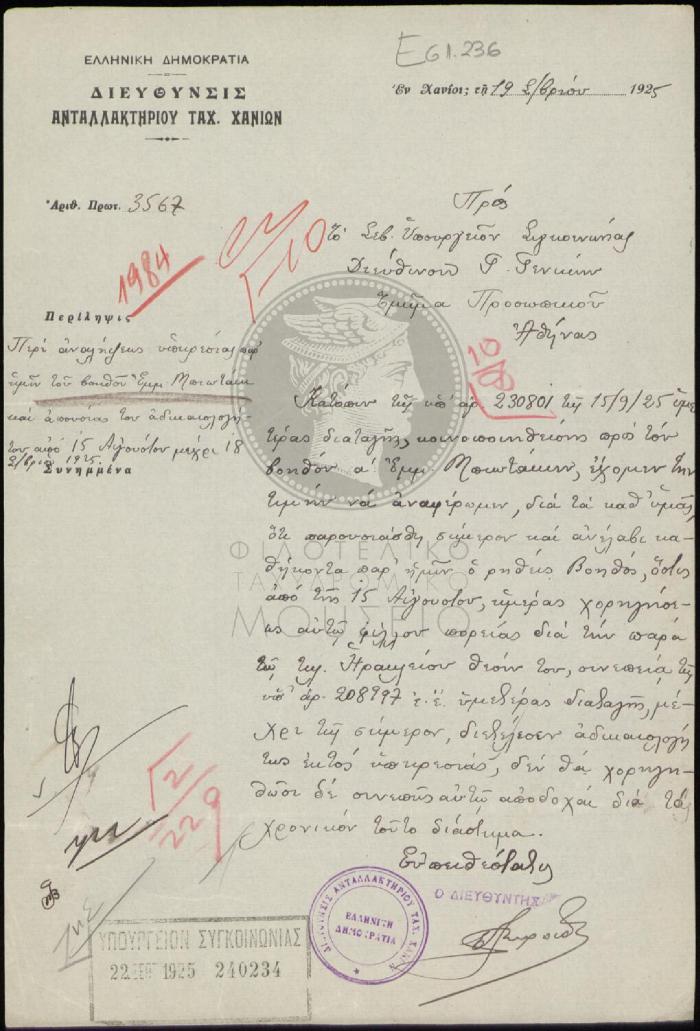 E61.236
ΕΛΛΗΝΙΚΗ ΔΗΜΟΚΡΑΤΙΑ
ΔΙΕΥΘΥΝΣΙΣ
ΑΝΤΑΛΛΑΚΤΗΡΙΟΥ ΤΑΧ. ΧΑΝΙΩΝ
Ἐν Χανίοις τῇ 19 Σ/βρίου 1925
Ἀριθ. Πρωτ. 3567
1984
Πρὸς
Τὸ Σεβ. Ὑπουργεῖον Συγκοινωνίας
Διεύθυνσιν Τ. Γενικήν
Τμῆμα Προσωπικοῦ
Ἀθήνας
Περίληψις
Περὶ ἀναλήψεως ὑπηρεσίας παρ'
ἡμῖν τοῦ βοηθοῦ Ἐμμ. Μπιωτάκη
καὶ ἀπουσίας του ἀδικαιολογή
του ἀπὸ 15 Αὐγούστου μέχρι 18
Σ/βρίου 1925
Συνημμένα
Κατόπιν τῆς ὑπ' ἀρ. 230801 τῆς 15/9/25 ὑμε
τέρας διαταγῆς, κοινοποιηθείσης πρὸς τὸν
βοηθὸν α' Ἐμμ. Μπιωτάκην, ἔχομεν τὴν
τιμὴν νὰ ἀναφέρωμεν, διὰ τὰ καθ' ὑμᾶς,
ὅτι παρουσιάσθη σήμερον καὶ ἀνέλαβε κα
θήκοντα παρ' ἡμῖν ὁ ρηθεὶς Βοηθός, ὅστις
ἀπὸ τῆς 15 Αὐγούστου, ἡμέρας χορηγήσε
ως αὐτῷ φύλλου πορείας διὰ τὴν παρὰ
τῷ τηλ. Ἡρακλείου θέσιν του, συνεπείᾳ τῆς
ὑπ' ἀρ. 208997 ἐ.ἔ. ὑμετέρας διαταγῆς, μέ
χρι τῆς σήμερον, διετέλεσεν ἀδικαιολογή
τως ἐκτὸς ὑπηρεσίας, δὲν θὰ χορηγη
θῶσι δὲ συνεπῶς αὐτῷ ἀποδοχαὶ διὰ τὸ
χρονικὸν τοῦτο διάστημα.
Εὐπειθέστατος
Ο ΔΙΕΥΘΥΝΤΗΣ
ΔΙΕΥΘΥΝΣΙΣ ΑΝΤΑΛΛΑΚΤΗΡΙΟΥ ΤΑΧ. ΧΑΝΙΩΝ
ΕΛΛΗΝΙΚΗ
ΔΗΜΟΚΡΑΤΙΑ
ΥΠΟΥΡΓΕΙΟΝ ΣΥΓΚΟΙΝΩΝΙΑΣ
22 ΣΕΠ 1925 240234
ΦΙΛΟΤΕΛΙΚΟ
ΤΑΧΥΔΡΟΜΙΚΟ
ΜΟΥΣΕΙΟ